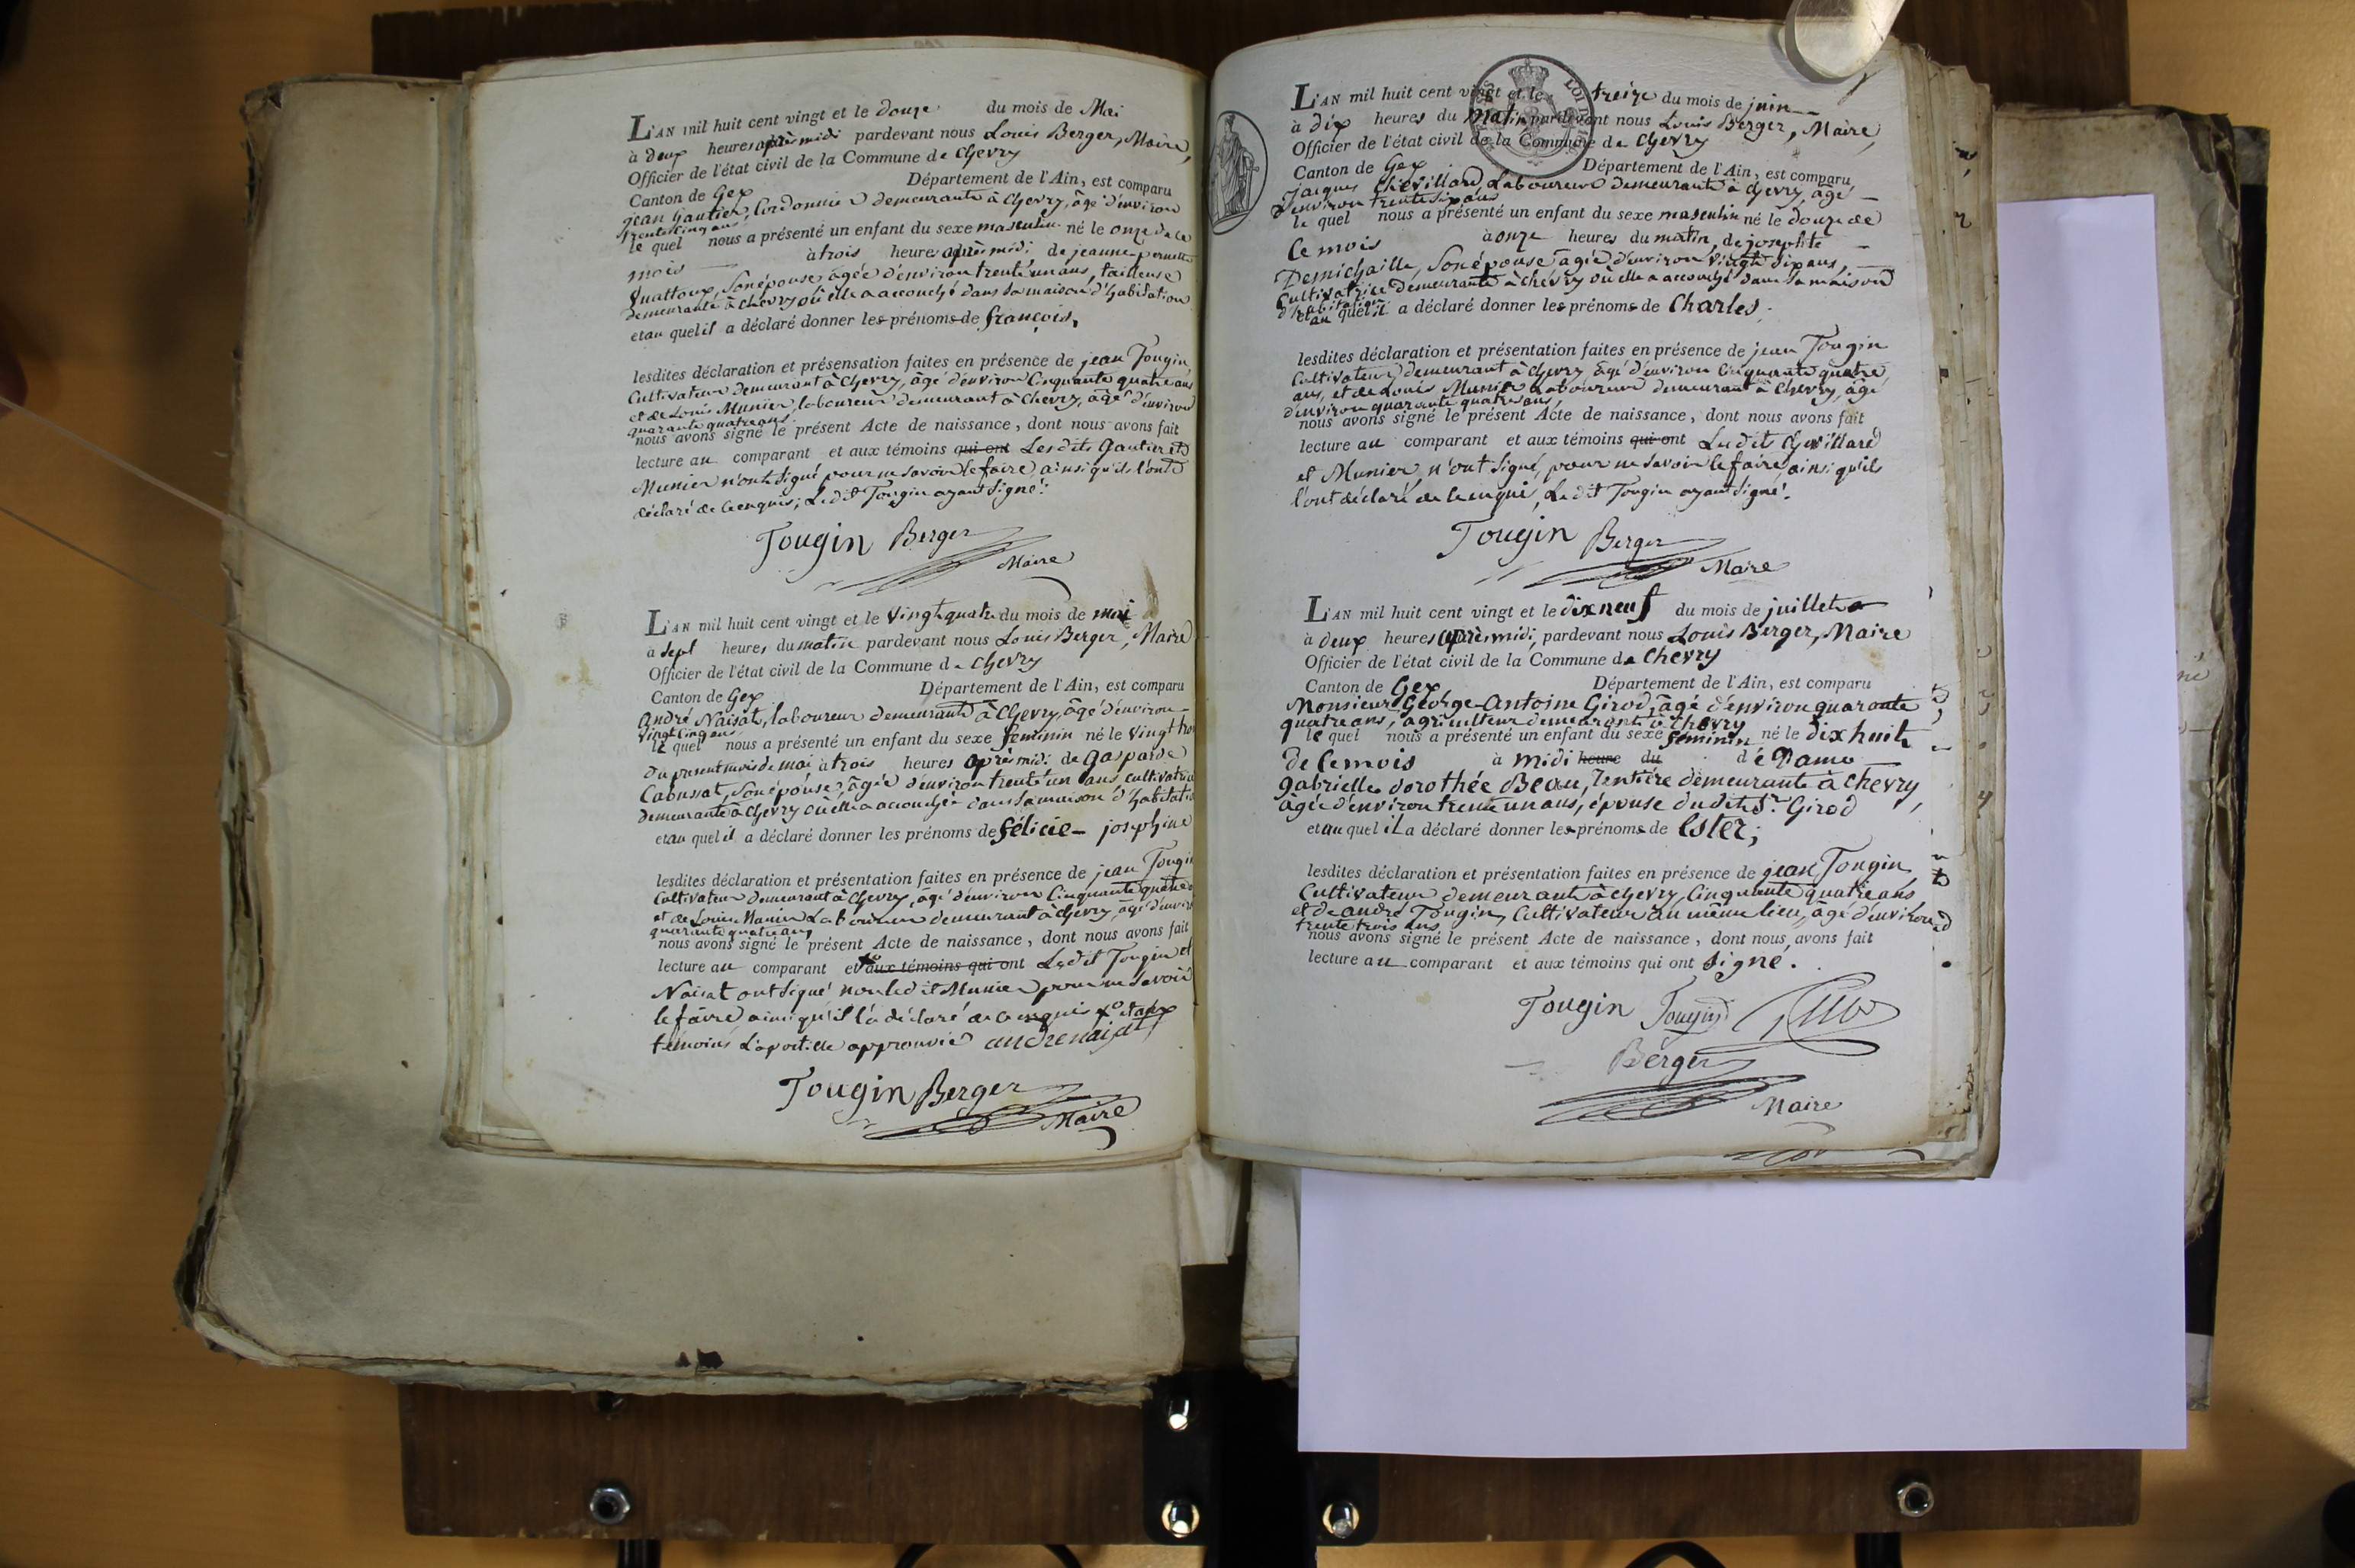 L'AN mil huit cent vingt et le douze du mois de Mai
à deux heures après midi pardevant nous Louis Berger, Maire,
Officier de l'état civil de la Commune de Chevry
Canton de Gex Département de l'Ain, est comparu
jean Gautier, Cordonnier demeurant à Chevry, âgé d'environ
trente cinq ans
le quel nous a présenté un enfant du sexe masculin né le onze de ce
mois à trois heures après midi de jeanne pernette
Quattoux, son épouse, âgée d'environ trente un ans, tailleuse
demeurante à Chevry où elle a accouché dans sa maison d'habitation
et au quel il a déclaré donner les prénoms de françois,
lesdites déclaration et présensation faites en présence de jean Tougin,
Cultivateur demeurant à Chevry, âgé d'environ Cinquante quatre ans
et de Louis Munier, laboureur demeurant à Chevry, âgé d'environ
quarante quatre ans.
nous avons signé le présent Acte de naissance, dont nous avons fait
lecture au comparant et aux témoins qui ont Lesdits Gautier et
Munier n'ont signé pour ne savoir le faire ainsi qu'ils l'ont
déclaré de ce enquis; Ledit Tougin ayant signé.
Tougin Berger
Maire
L'AN mil huit cent vingt et le Vingt quatre du mois de mai
à sept heures du matin pardevant nous Louis Berger, Maire
Officier de l'état civil de la Commune de Chevry
Canton de Gex Département de l'Ain, est comparu
André Naisat, laboureur demeurant à Chevry, âgé d'environ
vingt cinq ans
le quel nous a présenté un enfant du sexe feminin né le Vingt
du present mois de mai à trois heures après midi de Gasparde
Cabussat, son épouse, âgée d'environ trente un ans cultivatrice
demeurante à Chevry où elle a accouchée dans sa maison d'habitation
et au quel il a déclaré donner les prénoms de félicie josephine
lesdites déclaration et présentation faites en présence de jean Tougin
Cultivateur demeurant à Chevry, âgé d'environ Cinquante quatre
et de Louis Munier Laboureur demeurant à Chevry, âgé d'environ
quarante quatre ans,
nous avons signé le présent Acte de naissance, dont nous avons fait
lecture au comparant et aux témoins qui ont Ledit Tougin et
Naisat ont signé non ledit Munier pour ne savoir
le faire ainsi qu'il l'a déclaré de ce enquis et aux
témoins L'apostille approuvée andré naisat
Tougin Berger
Maire
L'AN mil huit cent vingt et le treize du mois de juin
à dix heures du matin pardevant nous Louis Berger, Maire,
Officier de l'état civil de la Commune de Chevry
Canton de Gex Département de l'Ain, est comparu
jacques Chevillard, Laboureur demeurant à Chevry, âgé
d'environ trente six ans
le quel nous a présenté un enfant du sexe masculin né le douze de
Ce mois à onze heures du matin, de josephte
Demichaille, Son épouse âgée d'environ Vingt dix ans,
Cultivatrice demeurante à Chevry où elle a accouché dans sa maison
d'habitation
et au quel il a déclaré donner les prénoms de Charles.
lesdites déclaration et présentation faites en présence de jean Tougin
Cultivateur demeurant à Chevry âgé d'environ Cinquante quatre
ans, et de Louis Munier Laboureur demeurant à Chevry, âgé
d'environ quarante quatre ans,
nous avons signé le présent Acte de naissance, dont nous avons fait
lecture au comparant et aux témoins qui ont Ledit Chevillard
et Munier, n'ont signé, pour ne savoir le faire, ainsi qu'ils
l'ont déclaré de ce enquis, Ledit Tougin ayant signé.
Tougin Berger
Maire
L'AN mil huit cent vingt et le dix neuf du mois de juillet
à deux heures après midi, pardevant nous Louis Berger, Maire
Officier de l'état civil de la Commune de Chevry
Canton de Gex Département de l'Ain, est comparu
Monsieur George-Antoine Girod, âgé d'environ quarante
quatre ans, agriculteur demeurant à Chevry
le quel nous a présenté un enfant du sexe féminin né le dix huit
de Ce mois à midi heure du de Dame
gabrielle dorothée Beau, rentière demeurante à Chevry
âgée d'environ trente un ans, épouse du dit Sr. Girod
et au quel il a déclaré donner les prénoms de Ester;
lesdites déclaration et présentation faites en présence de jean Tougin,
Cultivateur demeurant à Chevry, Cinquante quatre ans
et de andré Tougin, Cultivateur au même lieu, âgé d'environ
trente trois ans
nous avons signé le présent Acte de naissance, dont nous avons fait
lecture au comparant et aux témoins qui ont signé.
Tougin Tougin
Berger
Maire